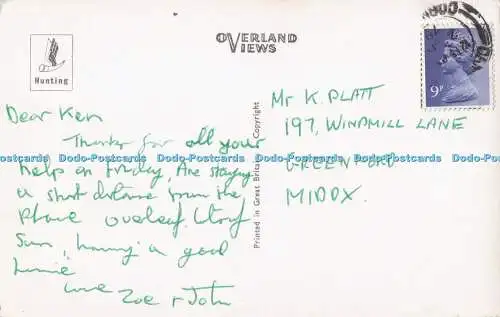 OVERLAND
VIEWS
Hunting
9P
Dear Ken
Thanks for all your
help on Friday, Are staying
a short distance from the
place overleaf. Lots of
Sun, having a good
time
Love
Zoe + John
Printed in Great Britain Copyright
Mr K. PLATT
197, WINDMILL LANE
GREENFORD
MIDDX.
Postcards Dodo-Postcards Dodo-Postcards Dodo-Postcards Dodo-Postcards Dodo-Postcards Dodo